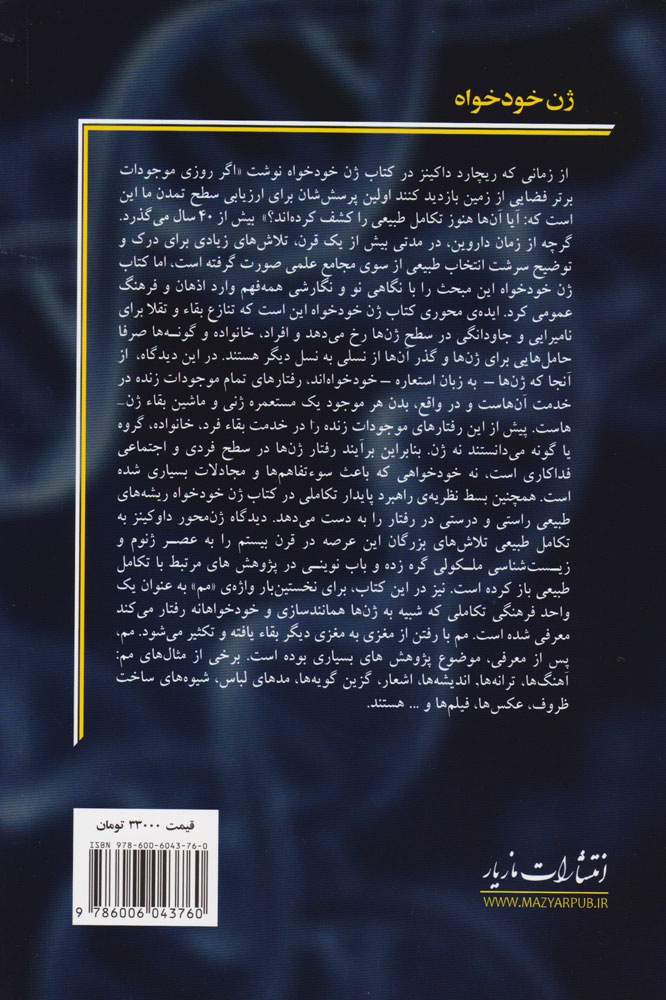 ژن خودخواه
از زمانی که ریچارد داکینز در کتاب ژن خودخواه نوشت «اگر روزی موجودات
برتر فضایی از زمین بازدید کنند اولین پرسش‌شان برای ارزیابی سطح تمدن ما این
است که: آیا آن‌ها هنوز تکامل طبیعی را کشف کرده‌اند؟» بیش از ۴۰ سال می‌گذرد.
گرچه از زمان داروین، در مدتی بیش از یک قرن، تلاش‌های زیادی برای درک و
توضیح سرشت انتخاب طبیعی از سوی مجامع علمی صورت گرفته است، اما کتاب
ژن خودخواه این مبحث را با نگاهی نو و نگارشی همه‌فهم وارد اذهان و فرهنگ
عمومی کرد. ایده‌ی محوری کتاب ژن خودخواه این است که تنازع بقاء و تقلا برای
نامیرایی و جاودانگی در سطح ژن‌ها رخ می‌دهد و افراد، خانواده و گونه‌ها صرفا
حامل‌هایی برای ژن‌ها و گذر آن‌ها از نسلی به نسل دیگر هستند. در این دیدگاه، از
آنجا که ژن‌ها – به زبان استعاره – خودخواه‌اند، رفتارهای تمام موجودات زنده در
خدمت آن‌هاست و در واقع، بدن هر موجود یک مستعمره ژنی و ماشین بقاء ژن_
هاست. پیش از این رفتارهای موجودات زنده را در خدمت بقاء فرد، خانواده، گروه
یا گونه می‌دانستند نه ژن. بنابراین برآیند رفتار ژن‌ها در سطح فردی و اجتماعی
فداکاری است، نه خودخواهی که باعث سوءتفاهم‌ها و مجادلات بسیاری شده
است. همچنین بسط نظریه‌ی راهبرد پایدار تکاملی در کتاب ژن خودخواه ریشه‌های
طبیعی راستی و درستی در رفتار را به دست می‌دهد. دیدگاه ژن‌محور داوکینز به
تکامل طبیعی تلاش‌های بزرگان این عرصه در قرن بیستم را به عصر ژنوم و
زیست‌شناسی ملکولی گره زده و باب نوینی در پژوهش های مرتبط با تکامل
طبیعی باز کرده است. نیز در این کتاب، برای نخستین‌بار واژه‌ی «مم» به عنوان یک
واحد فرهنگی تکاملی که شبیه به ژن‌ها همانندسازی و خودخواهانه رفتار می‌کند
معرفی شده است. مم با رفتن از مغزی به مغزی دیگر بقاء یافته و تکثیر می‌شود. مم،
پس از معرفی، موضوع پژوهش های بسیاری بوده است. برخی از مثال‌های مم:
آهنگ‌ها، ترانه‌ها، اندیشه‌ها، اشعار، گزین گویه‌ها، مدهای لباس، شیوه‌های ساخت
ظروف، عکس‌ها، فیلم‌ها و ... هستند.
قیمت ۳۳۰۰۰ تومان
ISBN 978-600-6043-76-0
9 786006 043760
انتشارات مازیار
WWW.MAZYARPUB.IR